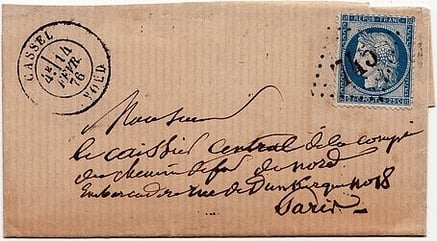 CASSEL
4E 14
FEVR.
76
NORD
REPUB. FRANC.
745
25 C. POSTES 25 C.
Monsieur
le caissier Central de la Compie
du chemin de fer de nord
Embarcadère rue de Dunkerque no 18
Paris